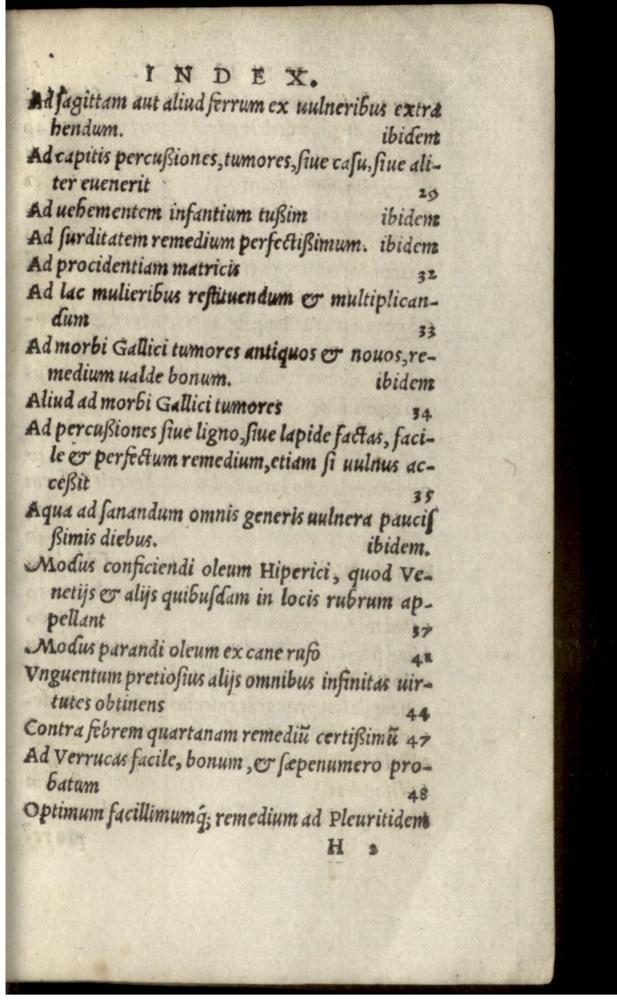 INDEX.
Ad ſagittam aut aliud ferrum ex uulneribus extra
hendum. ibidem
Ad capitis percußiones, tumores, ſiue caſu, ſiue ali-
ter euenerit 29
Ad uehementem infantium tußim ibidem
Ad ſurditatem remedium perfectißimum. ibidem
Ad procidentiam matricis 32
Ad lac mulieribus reſtituendum & multiplican-
dum 33
Ad morbi Gallici tumores antiquos & nouos, re-
medium ualde bonum. ibidem
Aliud ad morbi Gallici tumores 34
Ad percußiones ſiue ligno, ſiue lapide factas, faci-
le & perfectum remedium, etiam ſi uulnus ac-
ceßit 35
Aqua ad ſanandum omnis generis uulnera pauciſ
ßimis diebus. ibidem.
Modus conficiendi oleum Hiperici, quod Ve-
netijs & alijs quibuſdam in locis rubrum ap-
pellant 37
Modus parandi oleum ex cane rufo 42
Vnguentum pretioſius alijs omnibus infinitas uir-
tutes obtinens 44
Contra febrem quartanam remediū certißimū 47
Ad Verrucas facile, bonum, & ſæpenumero pro-
batum 48
Optimum facillimumq́; remedium ad Pleuritidem
H 2